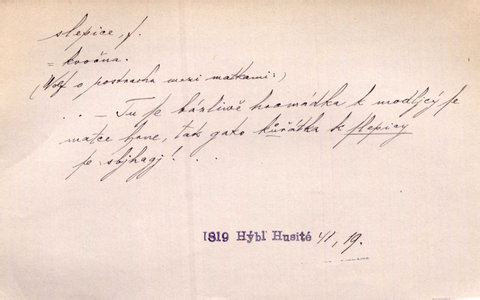 slepice, f.
= kvočna.
(Vlk o postrachu mezi matkami:)
. . – Tu se bázlivě hromádka k modljcý se
matce hrne, tak gako kuřátka k slepicy
se sbjhagj! . . .
1819 Hýbl Husité 41, 19.